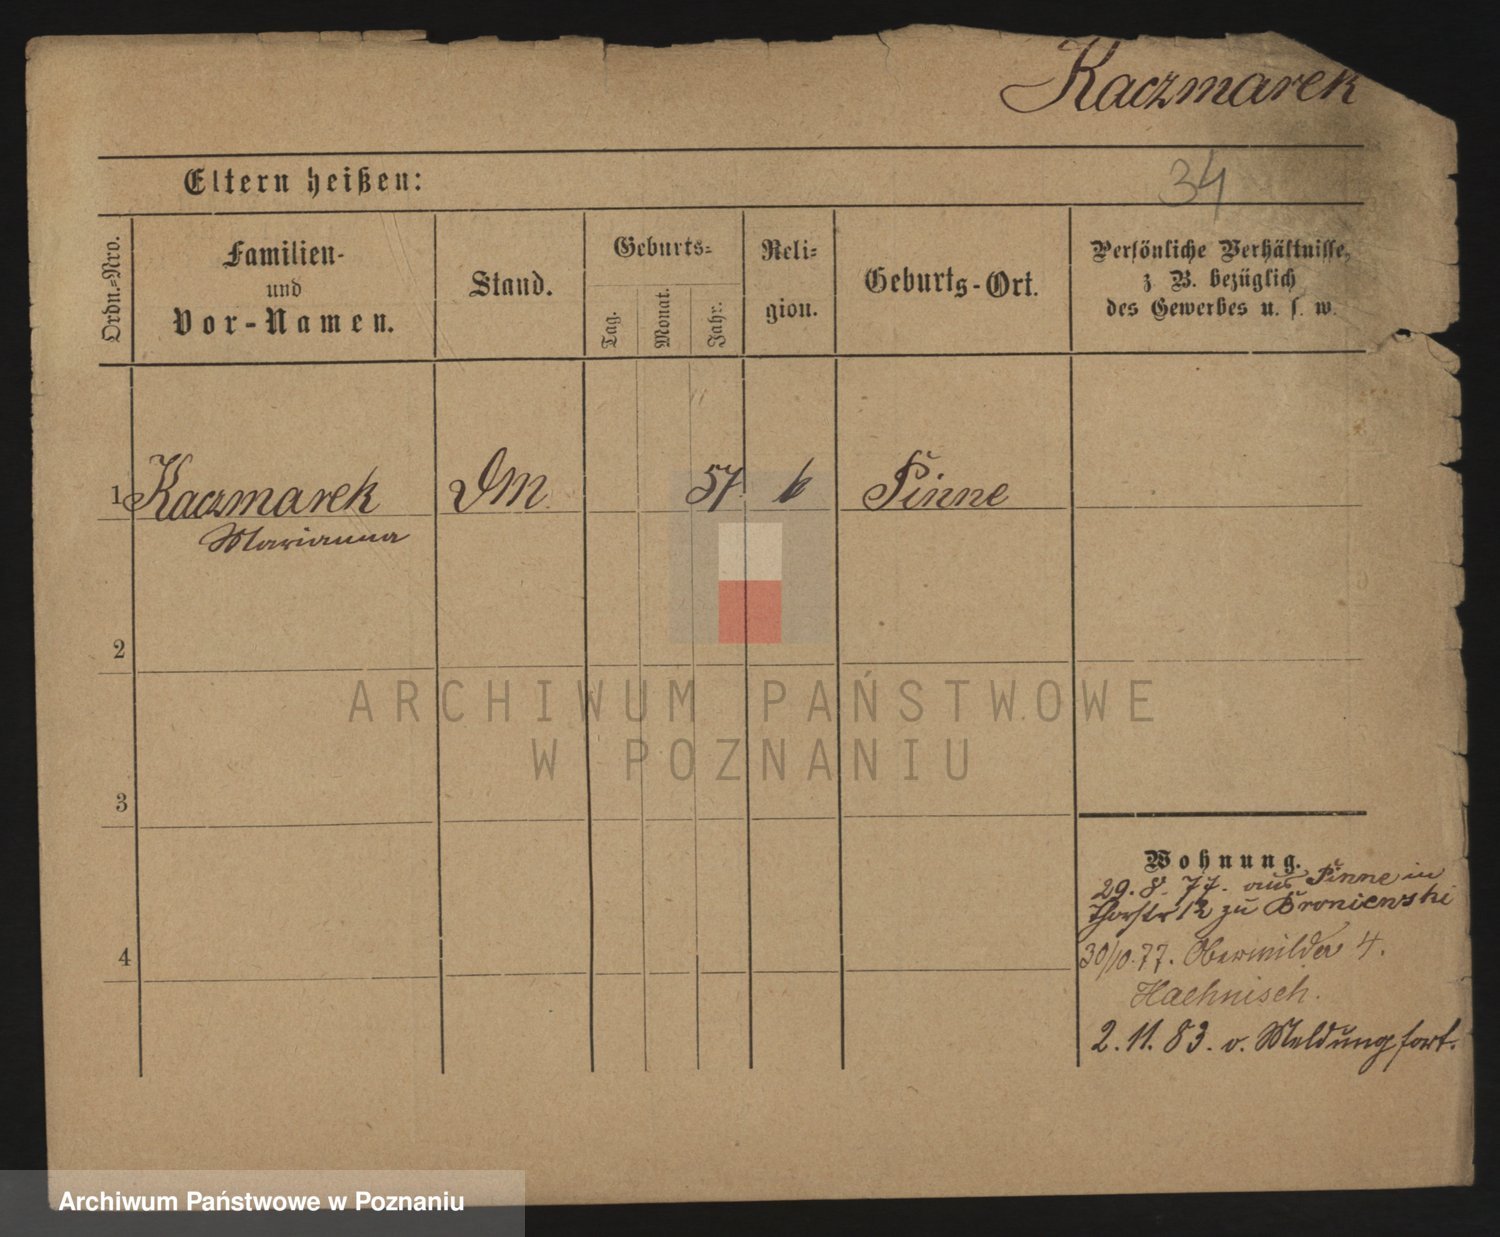 Kaczmarek
Eltern heißen:
34
Ordn.-Nro.
Familien-
und
Vor-Namen.
Stand.
Geburts-
Tag.
Monat.
Jahr.
Reli-
gion.
Geburts-Ort.
Persönliche Verhältnisse,
z B. bezüglich
des Gewerbes u. s. w.
1 Kaczmarek DM 57 k Pinne
Marianna
2
3
4
Wohnung.
29. 8. 77. aus Pinne in
12 zu Broniewski
30/10. 77. Oberwilda 4.
Haehnisch.
2. 11. 83. o. Meldung fort.
ARCHIWUM PAŃSTWOWE
W POZNANIU
Archiwum Państwowe w Poznaniu